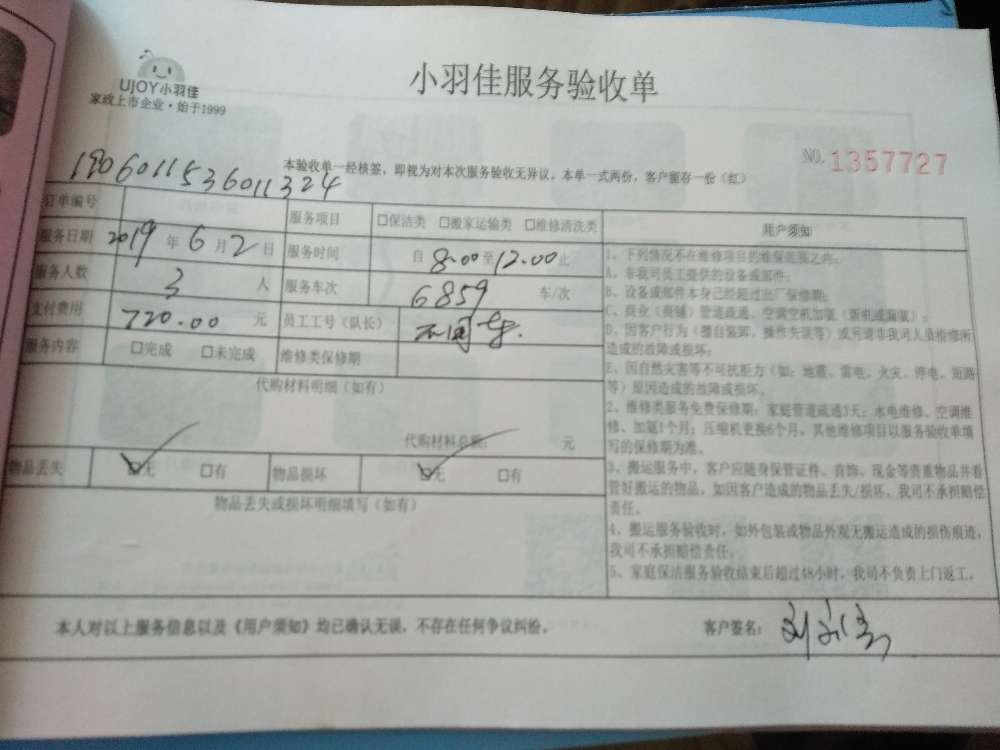 UJOY小羽佳
家政上市企业·始于1999
小羽佳服务验收单
本验收单一经核签，即视为对本次服务验收无异议。本单一式两份，客户留存一份（红）
NO. 1357727
订单编号 190601153601324
服务项目 □保洁类 □搬家运输类 □维修清洗类
服务日期 2019 年 6 月 2 日
服务时间 自 8.00 至 12.00 止
服务人数 3 人
服务车次 6859 车/次
支付费用 720.00 元
员工工号（队长）
服务内容 □完成 □未完成
维修类保修期
代购材料明细（如有）
代购材料总额： 元
物品丢失 □无 □有
物品损坏 □无 □有
物品丢失或损坏明细填写（如有）
用户须知
1、下列情况不在维修项目的维保范围之内：
A、非我司员工提供的设备或部件；
B、设备或部件本身已经超过出厂保修期；
C、商业（商铺）管道疏通、空调空机加氨（新机或漏氨）；
D、因客户行为（擅自装卸、操作失误等）或另请非我司人员检修所
造成的故障或损坏；
E、因自然灾害等不可抗拒力（如：地震、雷电、火灾、停电、短路
等）原因造成的故障或损坏。
2、维修类服务免费保修期：家庭管道疏通3天；水电维修、空调维
修、加氨1个月；压缩机更换6个月。其他维修项目以服务验收单填
写的保修期为准。
3、搬运服务中，客户应随身保管证件、首饰、现金等贵重物品并看
管好搬运的物品，如因客户造成的物品丢失/损坏，我司不承担赔偿
责任。
4、搬运服务验收时，如外包装或物品外观无搬运造成的损伤痕迹，
我司不承担赔偿责任。
5、家庭保洁服务验收结束后超过48小时，我司不负责上门返工。
本人对以上服务信息以及《用户须知》均已确认无误，不存在任何争议纠纷。
客户签名：